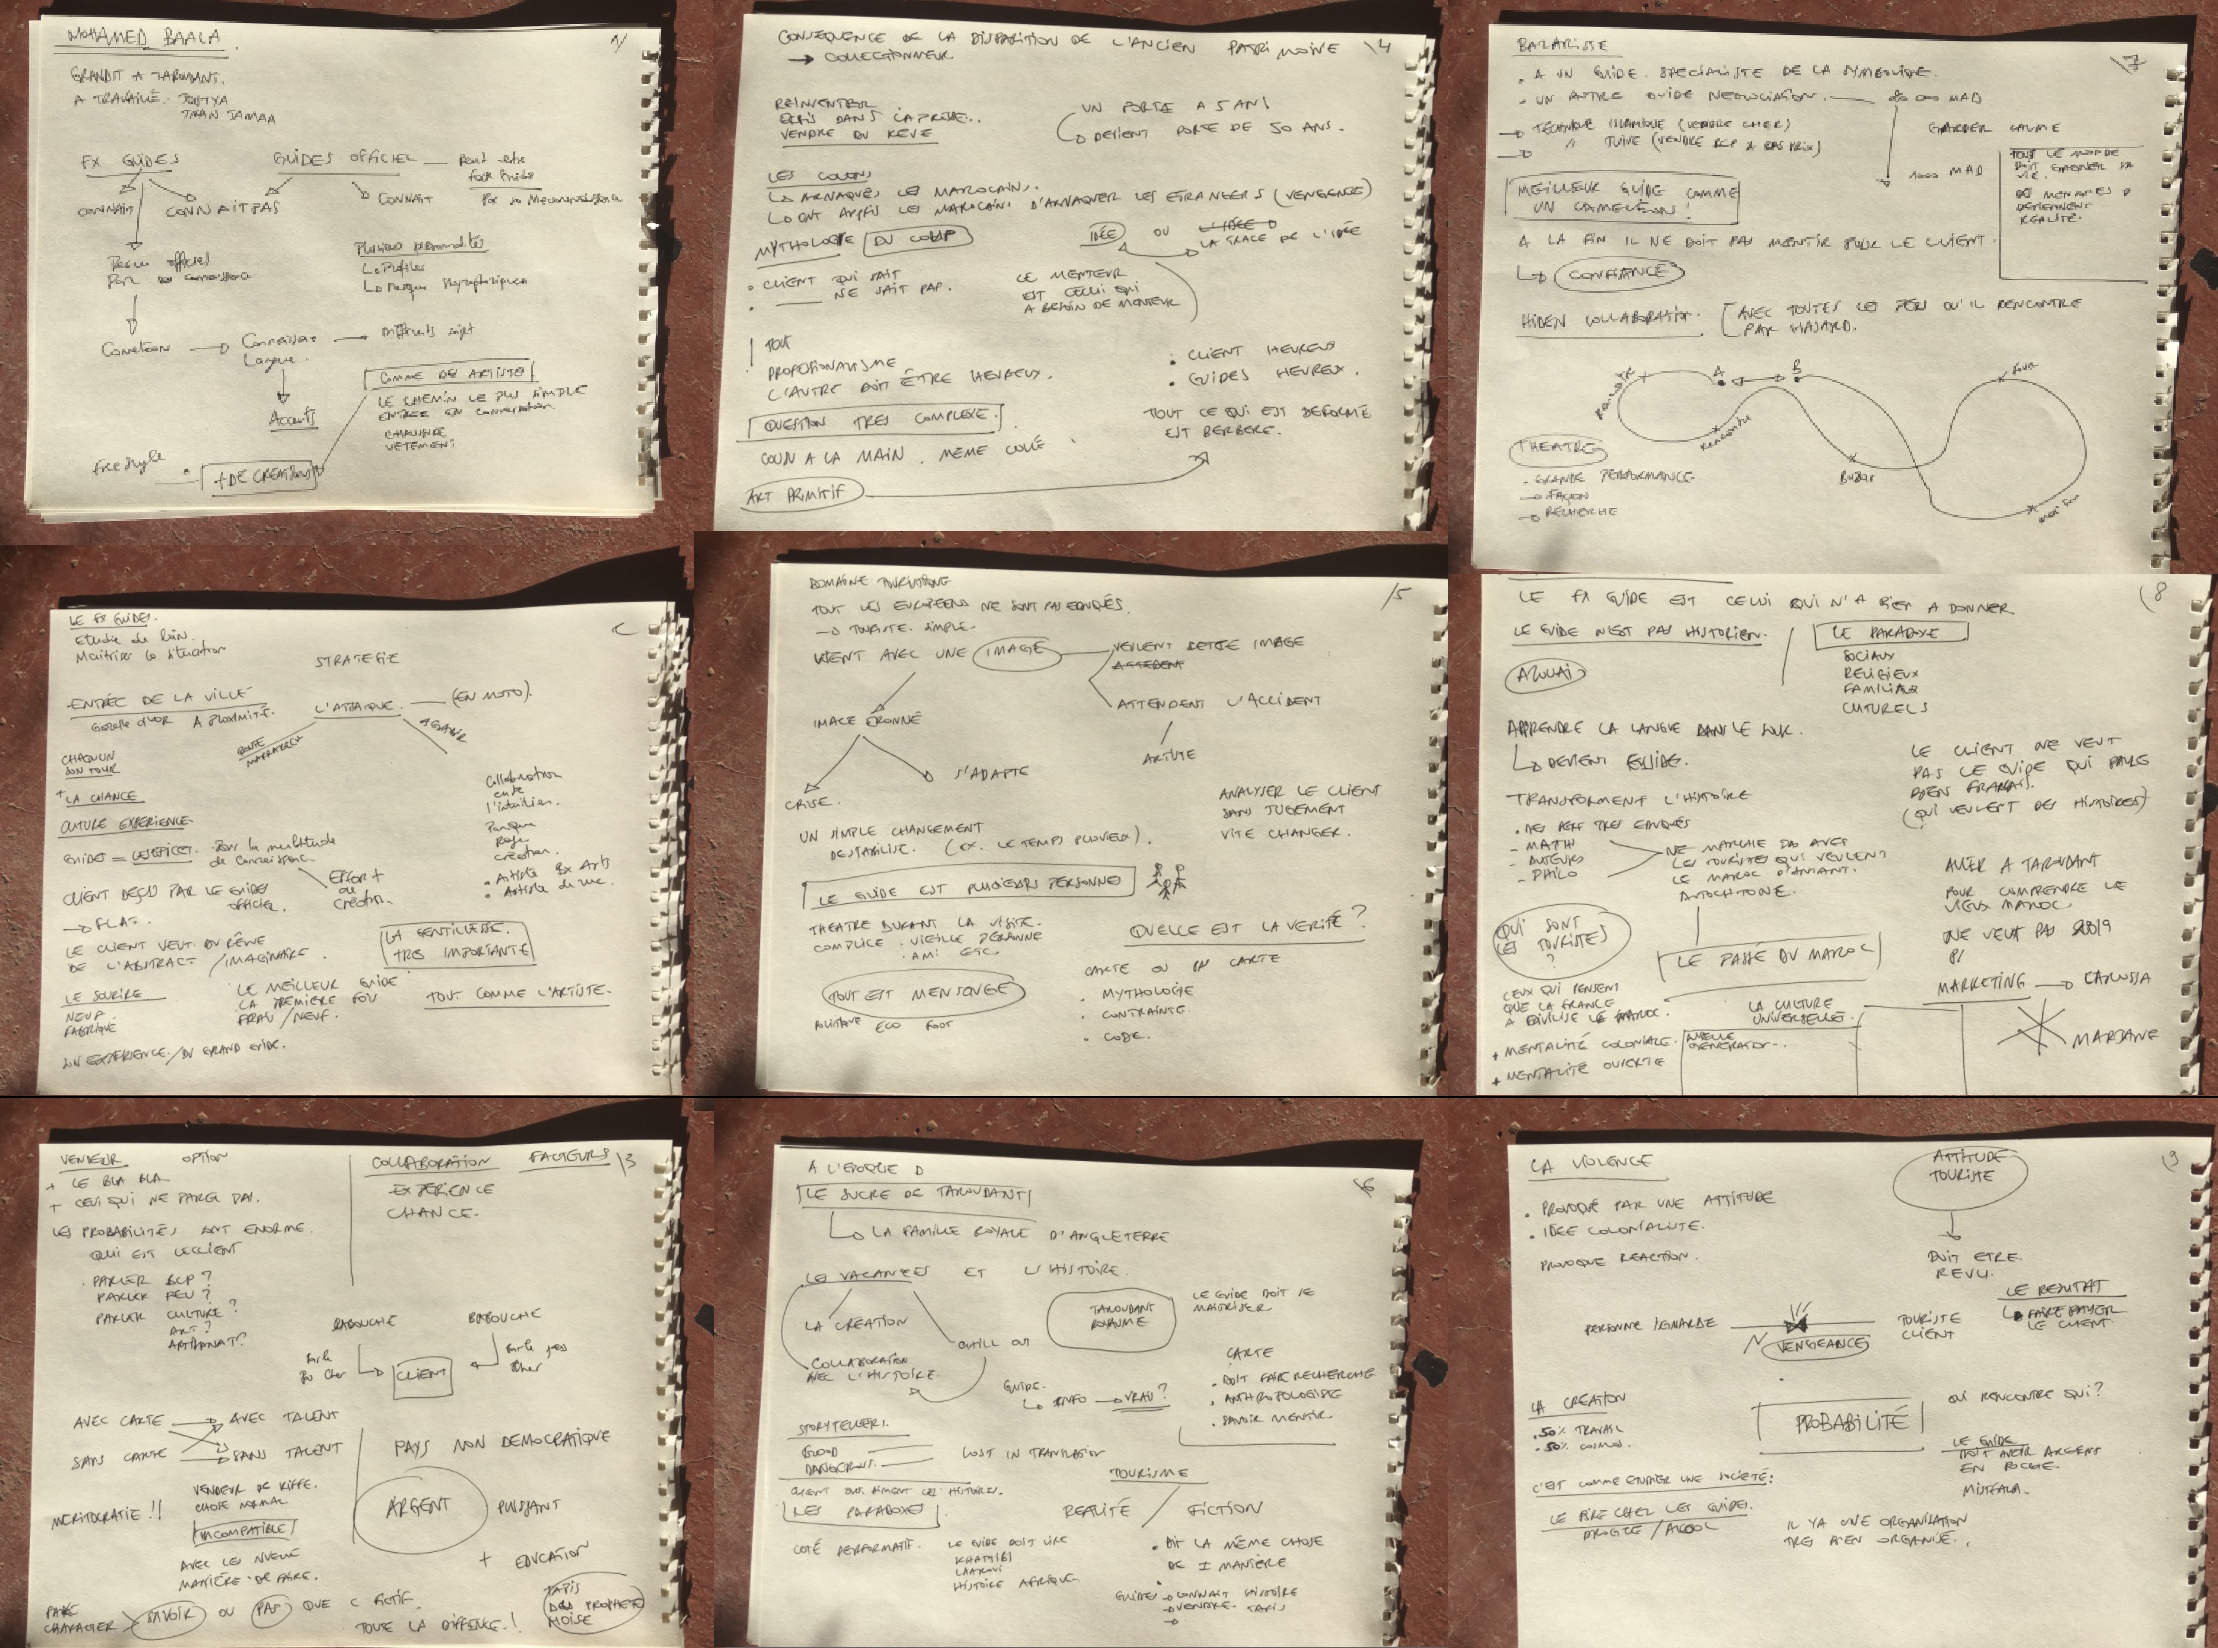 MOHAMED BAALA
1/
GRANDIT A TAROUDANT.
A TRAVAILLÉ. JOUTYA
JNAN JAMAA
FX GUIDES
GUIDES OFFICIEL
CONNAIT
CONNAIT PAS
CONNAIT
Connaissance
Langue.
Different sujet
Accents
COMME DES ARTISTES
LE CHEMIN LE PLUS SIMPLE
ENTRÉE EN CONVERSATION
CHAUSSURE
VETEMENT
Free style
+ DE CREATIONS
LE FX GUIDES.
Etudie de loin.
Maitriser la situation
STRATEGIE
ENTRÉE DE LA VILLE
Gazelle d'or A PROXIMITÉ.
L'ATTAQUE
(EN MOTO).
ROUTE
MARRAKECH
AGADIR
CHACUN
SON TOUR
+ LA CHANCE
CULTURE EXPERIENCE.
Collaboration
entre
l'intuition.
création.
Artiste Bx Arts
Artiste de rue.
Pour la multitude
de connaissance.
CLIENT DEÇUS PAR LE GUIDES
OFFICIEL.
EFFORT +
ou
création.
→ FLAT.
LE CLIENT VEUT DU RÊVE
DE L'ABSTRACT / IMAGINAIRE.
LA GENTILLESSE.
TRES IMPORTANTE
LE SOURIRE
NEUF
FABRIQUÉ
LE MEILLEUR GUIDE
LA PREMIÈRE FOIS
FRAIS / NEUF.
TOUT COMME L'ARTISTE.
SON EXPERIENCE. / DU GRAND GUIDE.
VENDEUR
OPTION
+ LE BLA BLA
+ CELUI QUI NE PARLE PAS.
LES PROBABILITÉS SONT ENORME.
QUI EST LE CLIENT
. PARLER BCP ?
PARLER PEU ?
PARLER CULTURE ?
ART ?
ARTISANAT ?
COLLABORATION
FACTEURS
\3
EXPÉRIENCE
CHANCE.
BABOUCHE
BABOUCHE
CLIENT
AVEC CARTE → AVEC TALENT
SANS CARTE → SANS TALENT
PAYS NON DEMOCRATIQUE
MERITOCRATIE !!
VENDEUR DE KIFFE.
CHOSE NORMAL
INCOMPATIBLE
AVEC LES NVELLE
MANIÈRE DE FAIRE.
ARGENT
PUISSANT
+ EDUCATION
TAPIS
DES PROPHETE
MOISE
SAVOIR OU PAS QUE C FICTIF.
TOUTE LA DIFFENCE. !
CONSEQUENCE DE LA DISPARITION DE L'ANCIEN PATRIMOINE
\4
→ COLLECTIONNEUR
REINVENTER
VENDRE DU RÊVE
UN PORTE A 5 ANS
DEVIENT PORTE DE 50 ANS.
LES COLONS
ARNAQUÉS LES MAROCAINS.
ONT APPRIS LES MAROCAINS D'ARNAQUER LES ETRANGERS (VENGENCE)
MYTHOLOGIE DU COUP
IDÉE OU
LA TRACE DE L'IDÉE
. CLIENT QUI SAIT
. NE SAIT PAS.
LE MENTEUR
EST CELUI QUI
A BESOIN DE MENTEUR
TOUT
PROFESIONALISME
L'AUTRE DOIT ÊTRE HEUREUX.
. CLIENT HEUREUX
. GUIDES HEUREUX.
QUESTION TRES COMPLEXE.
TOUT CE QUI EST DEFORMÉ
EST BERBERE.
ART PRIMITIF
DOMAINE TOURISTIQUE
/5
TOUT LES EUROPÉENS NE SONT PAS EDUQUÉS.
→ TOURISTE. SIMPLE.
VIENT AVEC UNE IMAGE
VEULENT CETTE IMAGE
ATTENDENT L'ACCIDENT
ARTISTE
IMAGE ÉRONNÉ
CRISE.
S'ADAPTE
UN SIMPLE CHANGEMENT
DESTABILISE. (EX. LE TEMPS PLUVIEUX).
ANALYSER LE CLIENT
SANS JUGEMENT
VITE CHANGER.
LE GUIDE EST PLUSIEURS PERSONNES
THEATRE DURANT LA VISITE.
COMPLICE . VIEILLE PERSONNE
. AMI ETC
QUELLE EST LA VERITÉ ?
TOUT EST MENSONGE
POLITIQUE ECO FOOT
. MYTHOLOGIE
. CONTRAINTE.
. CODE.
A L'EPOQUE D
\6
LE SUCRE DE TAROUDANT
LA FAMILLE ROYALE D'ANGLETERRE
LES VACANCES ET L'HISTOIRE.
LA CREATION
CHILL OUT
COLLABORATION
AVEC L'HISTOIRE.
TAROUDANT
ROYAUME
LE GUIDE DOIT SE
MAITRISER
GUIDE.
INFO → VRAI ?
CARTE
. DOIT FAIRE RECHERCHE
. ANTHROPOLOGISTE
. SAVOIR MENTIR.
STORYTELLERS.
GOOD
DANGEROUS.
LOST IN TRANSLATION
LES PARADOXES
TOURISME
REALITÉ / FICTION
COTÉ PERFORMATIF.
LE GUIDE DOIT LIRE
KHATIBI
LAAROUI
HISTOIRE AFRIQUE.
. DIT LA MÊME CHOSE
DE ≠ MANIÈRE
GUIDES → CONNAIT HISTOIRE
→ VENDRE TAPIS
BAZARISTE
\7
. A UN GUIDE. SPECIALISTE DE LA SYMBOLIQUE.
. UN AUTRE GUIDE NEGOCIATION.
TECHNIQUE ISLAMIQUE (VENDRE CHER)
" JUIVE (VENDRE BCP A BAS PRIX)
GARDER CALME
1000 MAD
MEILLEUR GUIDE COMME
UN CAMELÉON !
TOUT LE MONDE
DOIT GAGNER SA
VIE.
DEVIENNENT
REALITÉ.
A LA FIN IL NE DOIT PAS MENTIR POUR LE CLIENT.
CONFIANCE
HIDEN COLLABORATION.
AVEC TOUTES LES PERS QU'IL RENCONTRE
PAR HASARD.
A B
Rencontre
Bazar
THEATRE
. GRANDE PERFORMANCE
→ FAÇON
→ RECHERCHE
LE FX GUIDE EST CELUI QUI N'A RIEN A DONNER
\8
LE GUIDE N'EST PAS HISTORIEN.
LE PARADOXE
SOCIAUX
RELIGIEUX
FAMILIAUX
CULTURELS
APPRENDRE LA LANGUE DANS LE SOUK.
DEVIENT GUIDE.
LE CLIENT NE VEUT
PAS LE GUIDE QUI PARLE
BIEN FRANÇAIS.
(QUI VEULENT DES HISTOIRES)
TRANSFORMENT L'HISTOIRE
. DES PERS TRES EDUQUÉS
- MATH
- AUTEURS
- PHILO
NE MARCHE PAS AVEC
LES TOURISTES QUI VEULENT
LE MAROC D'AVANT.
AUTOCHTONE.
ALLER A TAROUDANT
POUR COMPRENDRE LE
VIEUX MAROC.
QUI SONT
LES TOURISTES
?
LE PASSÉ DU MAROC
CEUX QUI PENSENT
QUE LA FRANCE
A CIVILISÉ LE MAROC.
+ MENTALITÉ COLONIALE.
+ MENTALITÉ OUVERTE
LA CULTURE
UNIVERSELLE.
MARKETING
MARJANE
LA VIOLENCE
\9
. PROVOQUÉ PAR UNE ATTITUDE
. IDÉE COLONIALISTE.
PROVOQUE REACTION.
ATTITUDE
TOURISTE
DOIT ETRE.
REVU.
LE RESULTAT
FAIRE PAYER
LE CLIENT.
PERSONNE IGNARDE
VENGEANCE
TOURISTE
CLIENT
LA CREATION
. 50% TRAVAIL
. 50% COSMOS.
PROBABILITÉ
QUI RENCONTRE QUI ?
LE GUIDE
DOIT AVOIR ARGENT
EN POCHE.
C'EST COMME ETUDIER UNE SOCIETÉ :
LE PIRE CHEZ LES GUIDES.
DROGUE / ALCOOL
IL Y A UNE ORGANISATION
TRES BIEN ORGANISÉ.